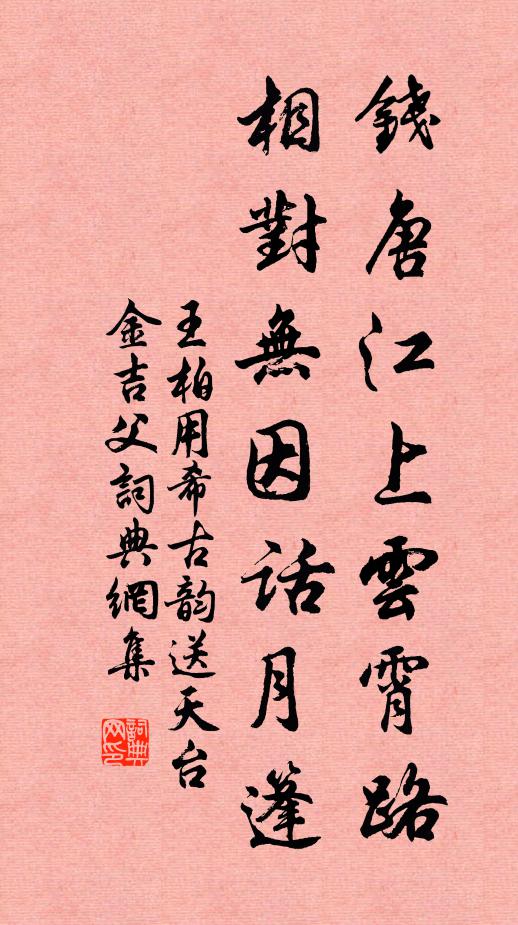 錢唐江上雲霄路
相對無因話月篷
王柏用希古韵送天台
金吉父詞典網集
詞典網印